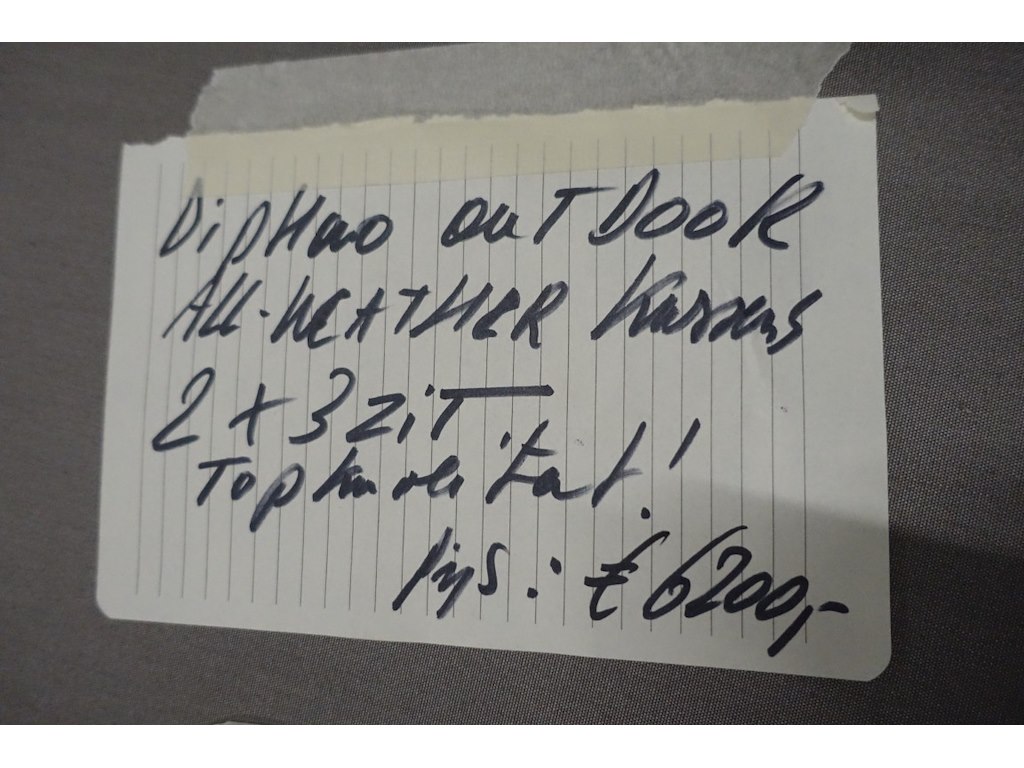 DipHano outDOOR
ALL-WEATHER Kussens
2 x 3 ziT
Topkwaliteit!
Prijs: € 6200,-